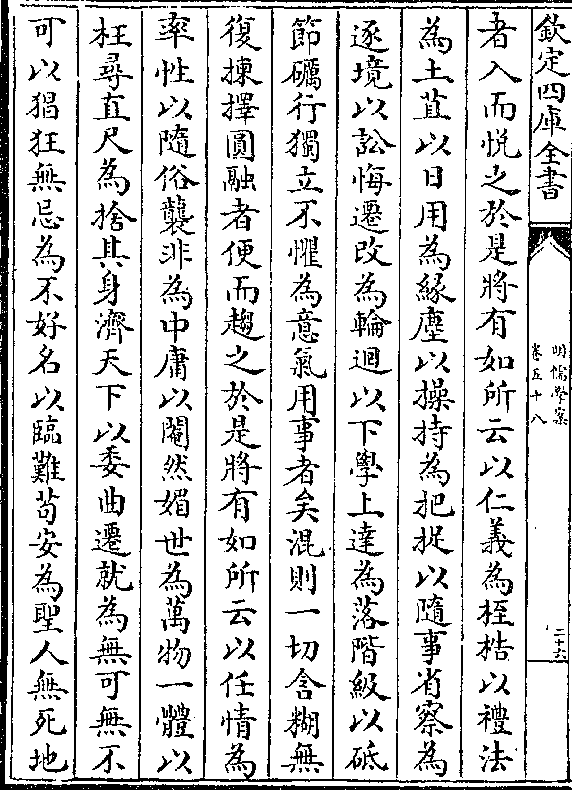 欽定四庫全書
明儒學案
卷五十八
二十六
者入而悦之於是將有如所云以仁義為桎梏以禮法
為土苴以日用為緣塵以操持為把捉以隨事省察為
逐境以訟悔遷改為輪迴以下學上達為落階級以砥
節礪行獨立不懼為意氣用事者矣混則一切含糊無
復揀擇圓融者便而趨之於是將有如所云以任情為
率性以隨俗襲非為中庸以閹然媚世為萬物一體以
枉尋直尺為捨其身濟天下以委曲遷就為無可無不
可以猖狂無忌為不好名以臨難苟安為聖人無死地